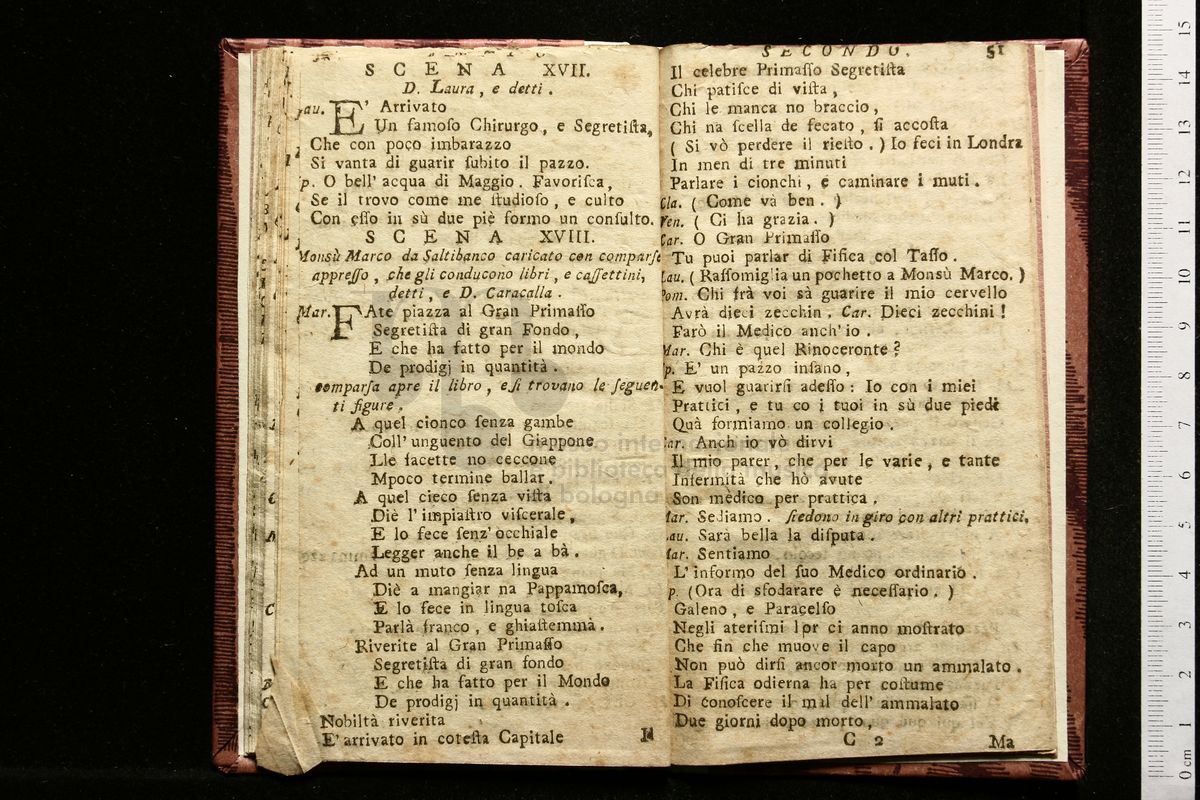 S C E N A XVII.
D. Laura, e detti.
au. E' Arrivato
Un famoſo Chirurgo, e Segretiſta,
Che con poço imbarazzo
Si vanta di guarir ſubito il pazzo.
p. O bell' acqua di Maggio. Favoriſca,
Se il trovo come me ſtudioſo, e culto
Con eſſo in sù due piè formo un conſulto.
S C E N A XVIII.
Monsù Marco da Saltibanco caricato con comparſe
appreſſo, che gli conducono libri, e caſſettini,
detti, e D. Caracalla.
Mar. FAte piazza al Gran Primaſſo
Segretiſta di gran Fondo,
E che ha fatto per il mondo
De prodigj in quantità.
comparſa apre il libro, e ſi trovano le ſeguen-
ti figure.
A quel cionco ſenza gambe
Coll' unguento del Giappone
Lle facette no ceccone
Mpoco termine ballar.
A quel cieco ſenza viſta
Diè l' impiaſtro viſcerale,
E lo fece ſenz' occhiale
Legger anche il be a bà.
Ad un muto ſenza lingua
Diè a mangiar na Pappamoſca,
E lo fece in lingua toſca
Parlà franco, e ghiaſtemmà.
Riverite al Gran Primaſſo
Segretiſta di gran fondo
E che ha fatto per il Mondo
De prodigj in quantità.
Nobiltà riverita
E' arrivato in coteſta Capitale Il
S E C O N D O. 51
Il celebre Primaſſo Segretiſta
Chi patiſce di viſta,
Chi le manca no braccio,
Chi na ſcella de fecato, ſi accoſta
( Si vò perdere il rieſto. ) Io feci in Londra
In men di tre minuti
Parlare i cionchi, e caminare i muti.
Cla. ( Come và ben. )
Ven. ( Ci ha grazia. )
Car. O Gran Primaſſo
Tu puoi parlar di Fiſica col Taſſo.
Lau. ( Raſſomiglia un pochetto a Monsù Marco. )
Pom. Chi frà voi sà guarire il mio cervello
Avrà dieci zecchin. Car. Dieci zecchini!
Farò il Medico anch' io.
Mar. Chi è quel Rinoceronte?
p. E' un pazzo inſano,
E vuol guarirſi adeſſo: Io con i miei
Prattici, e tu co i tuoi in sù due piedi
Quà formiamo un collegio.
ar. Anch io vò dirvi
Il mio parer, che per le varie, e tante
Infermità che hò avute
Son mèdico per prattica.
Mar. Sediamo. ſiedono in giro con altri prattici.
au. Sarà bella la diſputa.
Mar. Sentiamo
L' informo del ſuo Medico ordinario.
p. (Ora di sfodarare è neceſſario. )
Galeno, e Paracelſo
Negli ateriſmi lor ci anno moſtrato
Che fin che muove il capo
Non può dirſi ancor morto un ammalato.
La Fiſica odierna ha per coſtume
Di conoſcere il mal dell' ammalato
Due giorni dopo morto,
C 2 Ma